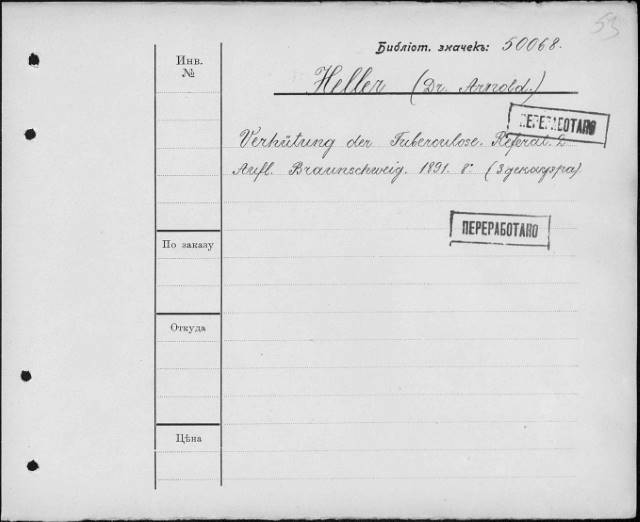 53
Библіот. значекъ: 50068.
Инв.
№
Heller (Dr. Arnold.)
ПЕРЕРАБОТАНО
Verhütung der Tuberculose. Referat. 2
Aufl. Braunschweig. 1891. 8°. (3 декаbr)
ПЕРЕРАБОТАНО
По заказу
Откуда
Цѣна